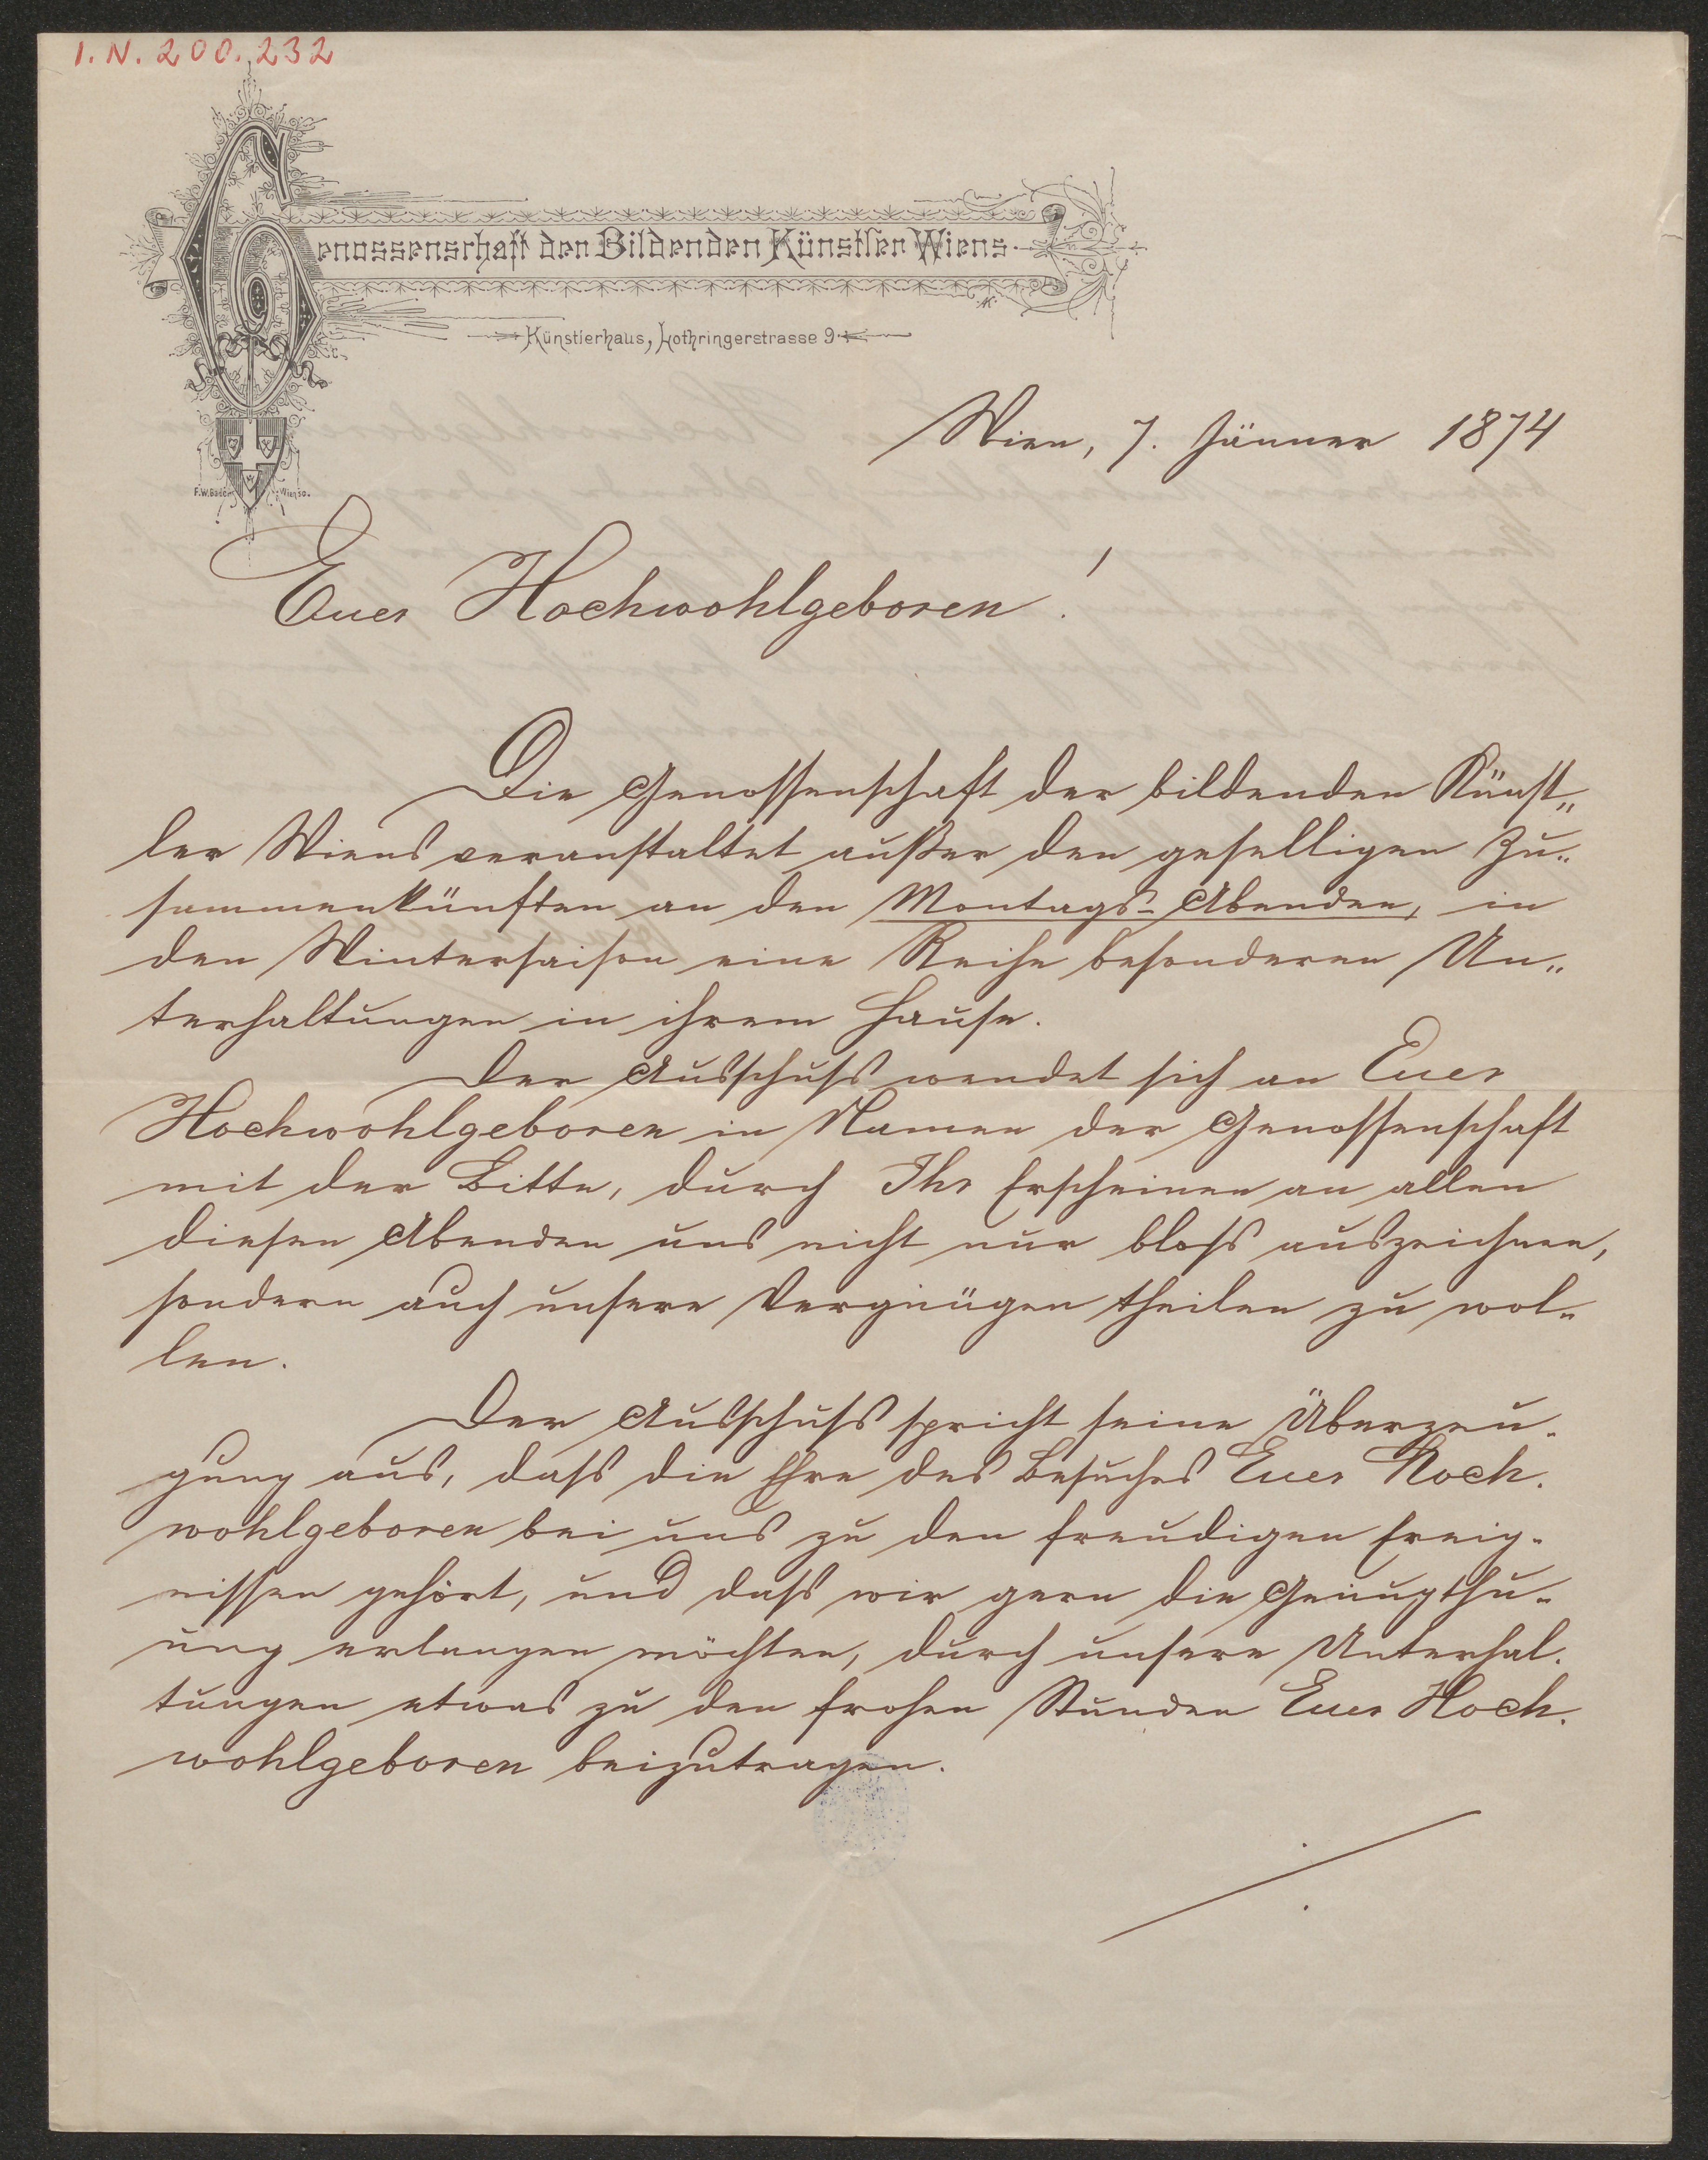 I.N. 200.232
Genossenschaft der Bildenden Künstler Wiens
Künstlerhaus, Lothringerstrasse 9
Wien, 7. Jänner 1874
Euer Hochwohlgeboren!
Die Genossenschaft der bildenden Künst„
ler Wiens veranstaltet außer den geselligen Zu„
sammenkünften an den Montags-Abenden, in
der Wintersaison eine Reihe besonderer Un„
terhaltungen in ihrem Hause.
Der Ausschuss wendet sich an Euer
Hochwohlgeboren im Namen der Genossenschaft
mit der Bitte, durch Ihr Erscheinen an allen
diesen Abenden uns nicht nur bloss auszeichnen,
sondern auch unsere Vergnügen theilen zu wol-
len.
Der Ausschuss spricht seine Überzeu-
gung aus, dass die Ehre des Besuches Euer Hoch-
wohlgeboren bei uns zu den freudigen Ereig-
nissen gehört, und dass wir gern die Genugthu-
ung erlangen möchten, durch unsere Unterhal-
tungen etwas zu den frohen Stunden Euer Hoch-
wohlgeboren beizutragen.
./.